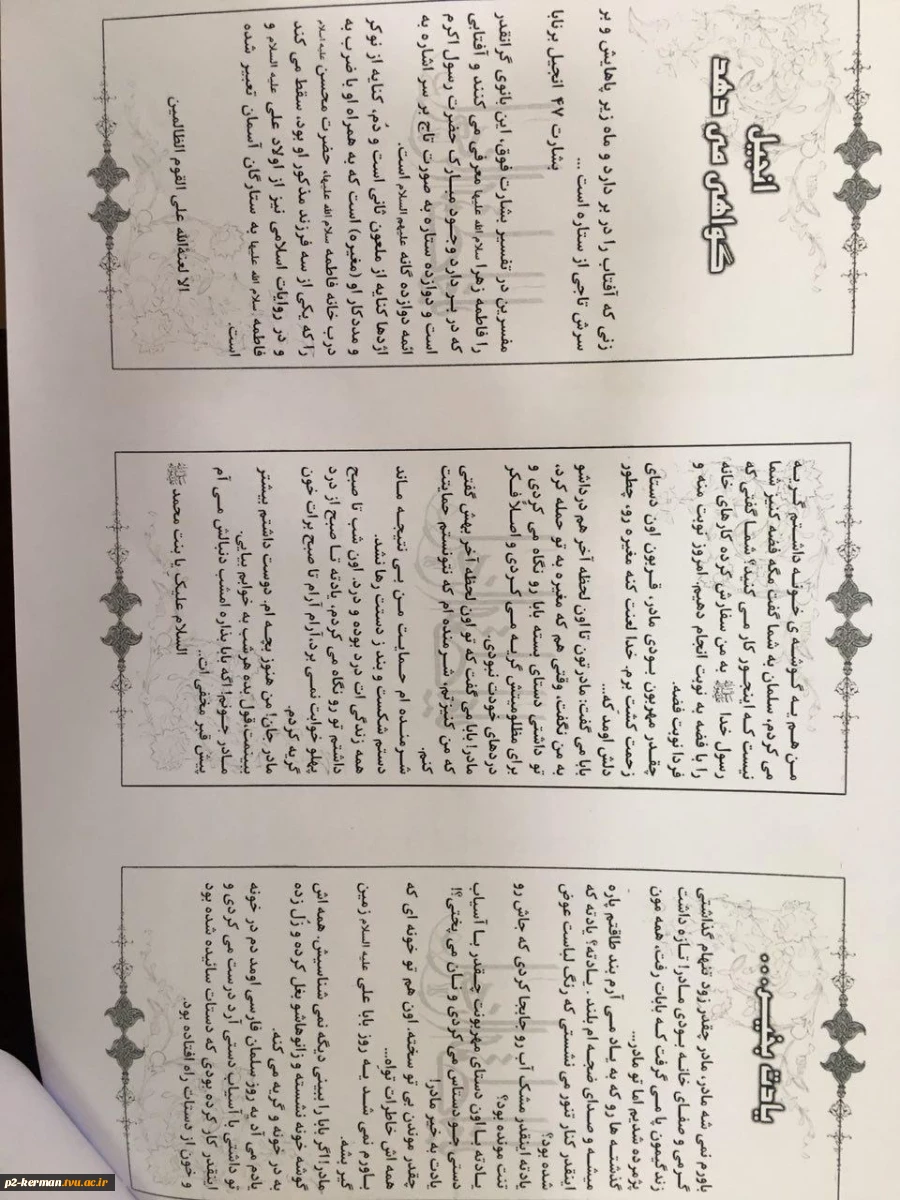 انجیل
گواهی می دهد
زنی که آفتاب را در بر دارد و ماه زیر پاهایش و بر
سرش تاجی از ستاره است ...
بشارت ۴۷ انجیل برنابا
مفسرین در تفسیر بشارت فوق، این بانوی گرانقدر
را فاطمه زهرا سلام الله علیها معرفی می کنند و آفتابی
که در بر دارد وجود مبارک حضرت رسول اکرم
است و دوازده ستاره به صورت تاج بر سر اشاره به
ائمه دوازده گانه علیهم السلام است.
اژدها کنایه از ملعون ثانی است و دُم، کنایه از نوکر
و مددکار او (مغیره) است که به همراه او با ضرب به
درب خانه فاطمه سلام الله علیها، حضرت محسن علیه السلام
را که یکی از سه فرزند مذکور او بود، سقط می کند
و در روایات اسلامی نیز از اولاد علی علیه السلام و
فاطمه سلام الله علیها به ستارگان آسمان تعبیر شده
است.
الا لعنةالله علی القوم الظالمین
من هم یه گوشه ی خونه داشتم گریه
می کردم، سلمان به شما گفت مگه فضه کنیز شما
نیست که اینجور کار می کنید؟ شما گفتی که
رسول خدا ﷺ به من سفارش کرده کارهای خانه
را با فضه به نوبت انجام دهیم. امروز نوبت منه و
فردا نوبت فضه.
چقدر مهربون بودی مادر، قربون اون دستای
زحمت کشت برم. خدا لعنت کنه مغیره رو، چطور
دلش اومد که...
بابا می گفت: مادرتون تا اون لحظه آخر هم درداشو
به من نگفت. وقتی هم که مغیره به تو حمله کرد،
تو داشتی دستای بسته بابا رو نگاه می کردی و
برای مظلومیتش گریه می کردی و اصلاً فکر
دردهای خودت نبودی.
مادر! بابا می گفت که تو اون لحظه آخر بهش گفتی
که من کنیزتم، شرمنده ام که نتونستم حمایتت
کنم.
شرمنده ام حمایت من بی نتیجه ماند
دستم شکست و بند ز دستت رها نشد.
همه زندگی ات درد بوده و درد. اون شب تا صبح
داشتم تو رو نگاه می کردم، یادته تا صبح از درد
پهلو خوابت نمی برد، آرام آرام تا صبح برات خون
گریه کردم.
مادر جان! من هنوز بچه ام. دوست داشتم بیشتر
ببینمت، قول بده هر شب به خوابم بیایی.
مادر جونم! اگه بابا بذاره امشب دنبالش می آم
پیش قبر مخفی ات..
السلام علیک یا بنت محمد ﷺ
یادت بخیر...
باورم نمی شه مادر، مادر چقدر زود تنهام گذاشتی
گرمی و صفای خانه بودی مادر! تازه داشت
زندگیمون پا می گرفت که بابات رفت، همه مون
پژمرده شدیم اما تو مادر...
گذشته ها رو که به یاد می آرم بند طاقتم پاره
میشه و صدای ضجه ام بلند. یادته؟ یادته که
اینقدر کنار تنور می نشستی که رنگ لباست عوض
شده بود؟
یادته اینقدر مشک آب رو جابجا کردی که جاش رو
تنت مونده بود؟
یادته با اون دستای مهربونت چقدر با آسیاب
دستی جو دستاس می کردی و نان می پختی؟!
یادت به خیر مادر!
چقدر موندن بی تو سخته، اون هم تو خونه ای که
همه اش خاطرات تواه...
باورم نمی شد یه روز بابا علی علیه السلام زمین
گیر بشه.
مادر! اگر بابا را ببینی دیگه نمی شناسیش. همه اش
گوشه خونه نشسته و زانوهاشو بغل کرده و زُل زده
به در خونه و گریه می کنه.
یادم می آد یه روز سلمان فارسی اومد دم در خونه
تو داشتی با آسیاب دستی آرد درست می کردی و
اینقدر کار کرده بودی که دستات ساییده شده بود
و خون از دستات راه افتاده بود.
p2-kerman.tvu.ac.ir